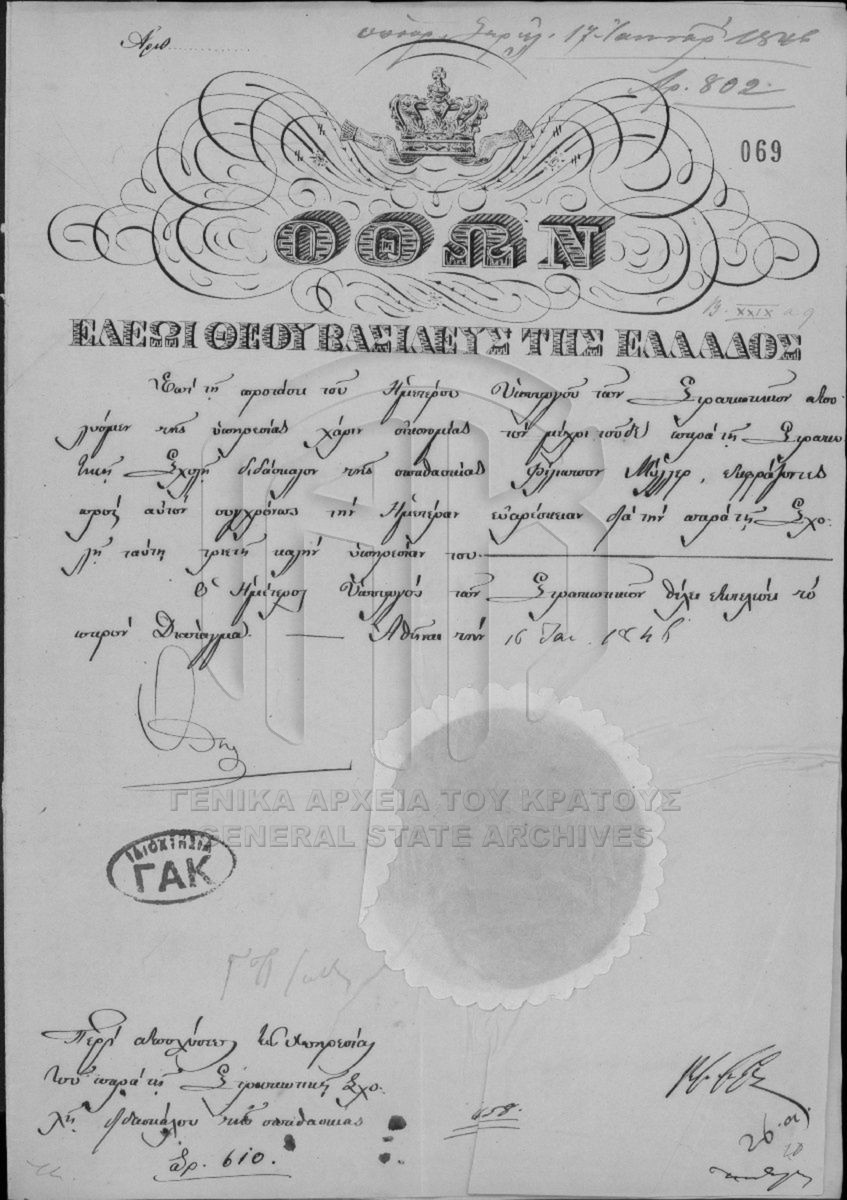 Αριθ.
17 Ιανουαρ 1846
Αρ. 802.
069
ΟΘΩΝ
B. XXIX a 9
ΕΛΕΩΙ ΘΕΟΥ ΒΑΣΙΛΕΥΣ ΤΗΣ ΕΛΛΑΔΟΣ
Ἐπὶ τῇ προτάσει τοῦ Ἡμετέρου Ὑπουργοῦ τῶν Στρατιωτικῶν ἀπο
λύομεν τῆς ὑπηρεσίας χάριν οἰκονομίας τὸν μέχρι τοῦδε παρὰ τῇ Στρατιω
τικῇ Σχολῇ διδάσκαλον τῆς σπαθασκίας Φίλιππον Μύλλερ, ἐκφράζοντες
πρὸς αὐτὸν συγχρόνως τὴν Ἡμετέραν εὐαρέσκειαν διὰ τὴν παρὰ τῇ Σχο
λῇ ταύτῃ τριετῆ καλὴν ὑπηρεσίαν του.
Ὁ Ἡμέτερος Ὑπουργὸς τῶν Στρατιωτικῶν θέλει ἐκτελέσει τὸ
παρὸν Διάταγμα. Ἀθῆναι τὴν 16 Ἰαν. 1846
ΓΕΝΙΚΑ ΑΡΧΕΙΑ ΤΟΥ ΚΡΑΤΟΥΣ
GENERAL STATE ARCHIVES
ΙΔΙΟΚΤΗΣΙΑ
ΓΑΚ
Περὶ ἀπολύσεως ἐκ τῆς ὑπηρεσίας
τοῦ παρὰ τῇ Στρατιωτικῇ Σχο
λῇ διδασκάλου τῆς σπαθασκίας
658.
Αρ. 610.
26